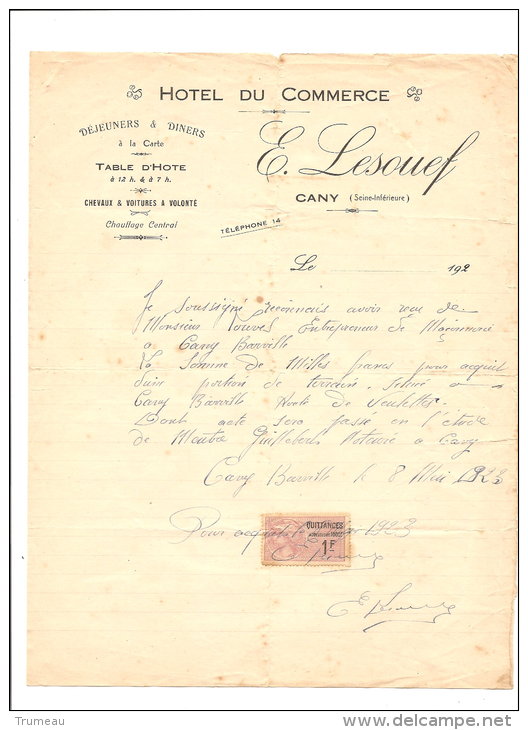 HOTEL DU COMMERCE
DÉJEUNERS & DINERS
à la Carte
TABLE D'HOTE
à 12 h. & à 7 h.
CHEVAUX & VOITURES A VOLONTÉ
Chauffage Central
E. Lesouef
CANY (Seine-Inférieure)
TÉLÉPHONE 14
Le 192
Je soussigné reconnais avoir reçu de
Monsieur Entrepreneur de Maçonnerie
a Cany Barville
La somme de Milles francs pour acquit
d'un portion de terrain. Situé a
Cany Barville Route de Veulettes.
Dont acte sera passé en l'étude
de Maître Guillebert Notaire a Cany
Cany Barville le 8 Mai 1923
Pour acquit le 1923
QUITTANCES
1F
Trumeau
delcampe.net